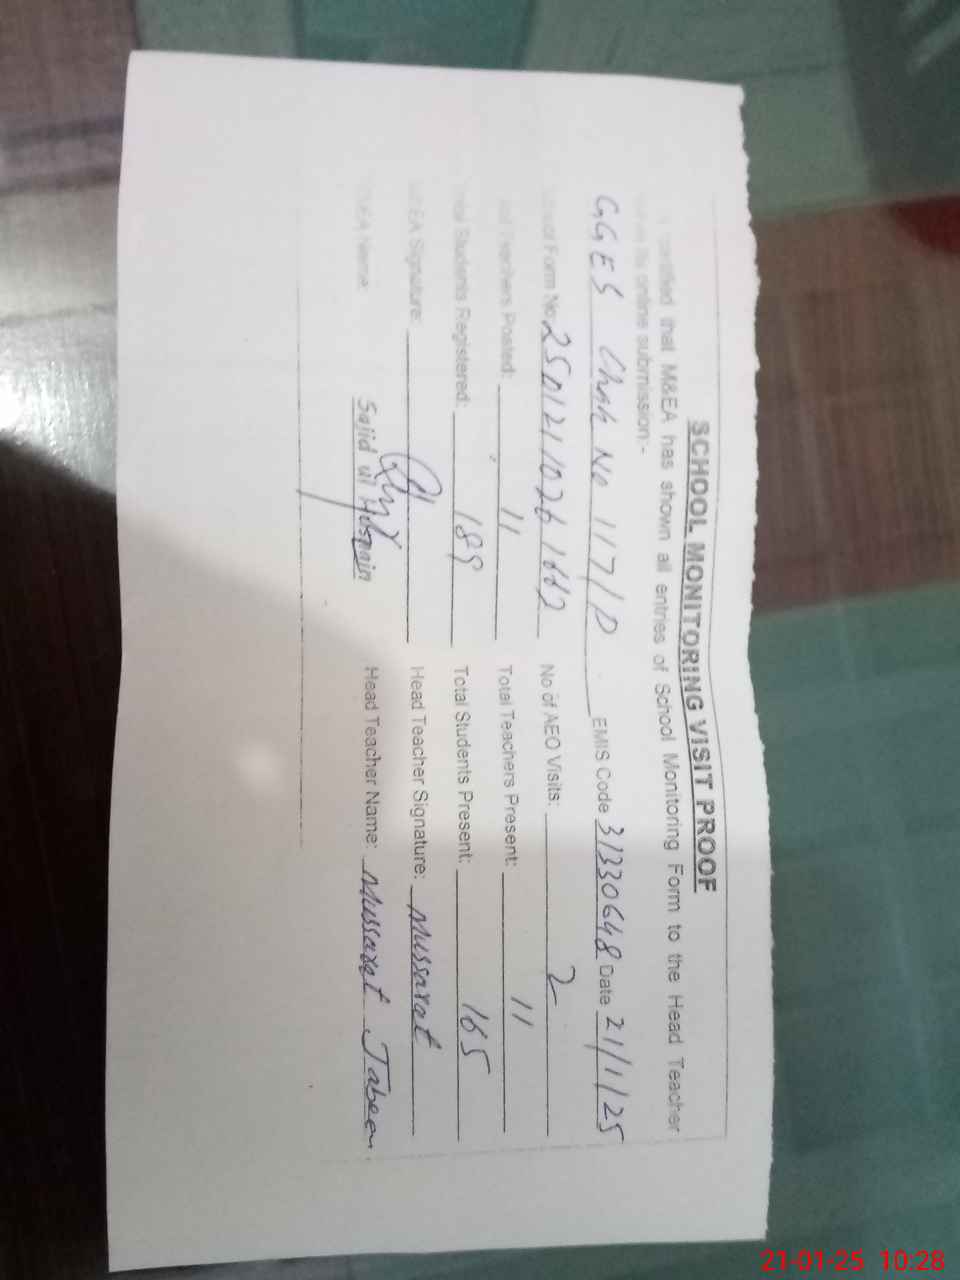 SCHOOL MONITORING VISIT PROOF
certified that M&EA has shown all entries of School Monitoring Form to the Head Teacher
online submission:-
GGES Chak No 117/D EMIS Code 31330648 Date 21/1/25
School Form No: No of AEO Visits: 2
Teachers Posted: 11 Total Teachers Present: 11
Total Students Registered: 189 Total Students Present: 165
MEA Signature: Head Teacher Signature: Mussarat
MEA Name: Sajid ul Hasnain Head Teacher Name: Mussarat Jabeen
21-01-25 10:28